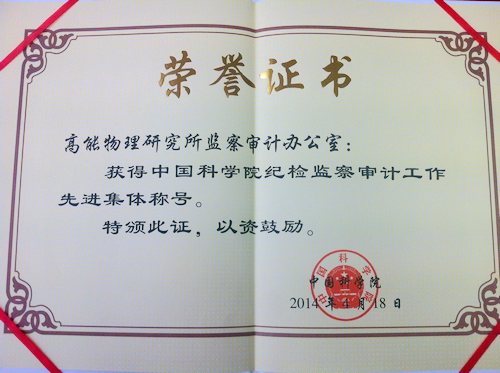 荣誉证书
高能物理研究所监察审计办公室：
获得中国科学院纪检监察审计工作
先进集体称号。
特颁此证，以资鼓励。
中国科学院
中国科学院
2014年4月18日